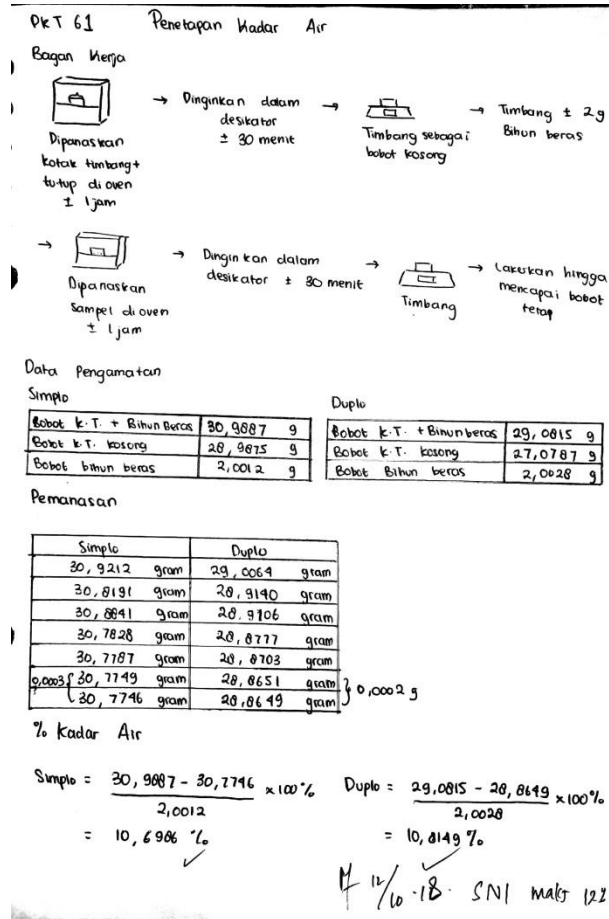 PKT 61 Penetapan Kadar Air
Bagan Kerja
Dipanaskan kotak timbang + tutup di oven ± 1 jam
→ Dinginkan dalam desikator ± 30 menit
→ Timbang sebagai bobot kosong
→ Timbang ± 2 g Bihun beras
→ Dipanaskan sampel di oven ± 1 jam
→ Dinginkan dalam desikator ± 30 menit
→ Timbang
→ Lakukan hingga mencapai bobot tetap
Data Pengamatan
Simplo
Bobot K.T. + Bihun Beras 30,9887 g
Bobot K.T. kosong 28,9875 g
Bobot bihun beras 2,0012 g
Duplo
Bobot K.T. + Bihun beras 29,0815 g
Bobot K.T. kosong 27,0787 g
Bobot Bihun beras 2,0028 g
Pemanasan
Simplo Duplo
30,9212 gram 29,0064 gram
30,8191 gram 28,9140 gram
30,8841 gram 28.9106 gram
30,7828 gram 28,8777 gram
30,7787 gram 28,8703 gram
0,0003 { 30,7749 gram 28,8651 gram } 0,0002 g
30,7746 gram 28,8649 gram
% Kadar Air
Simplo = 30,9887 - 30,7746 x 100 %
2,0012
= 10,6986 %
Duplo = 29,0815 - 28,8649 x 100 %
2,0028
= 10,8149 %
12/10 -18. SNI maks 12%